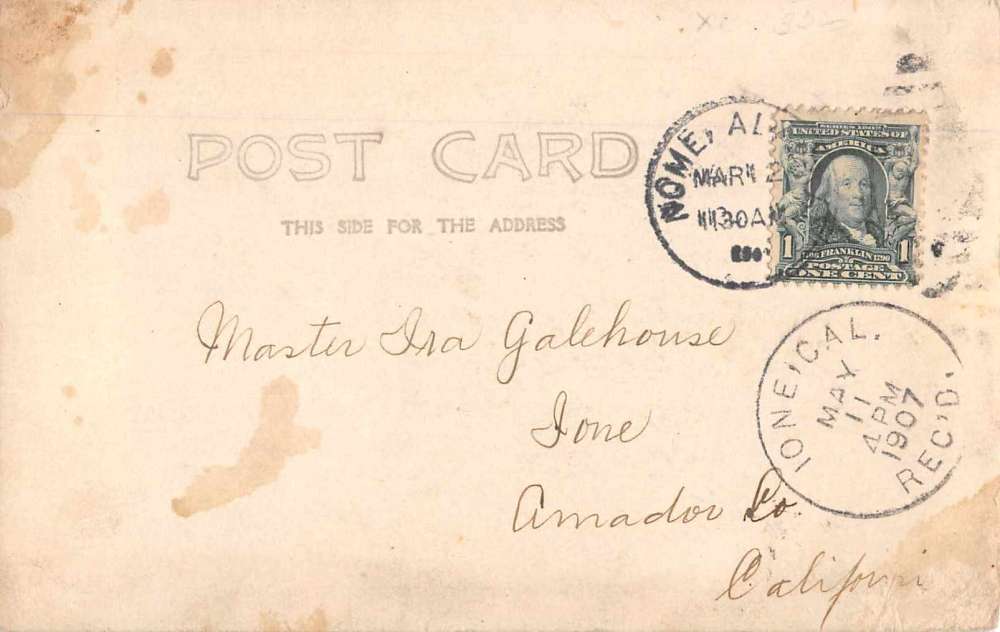 POST CARD
THIS SIDE FOR THE ADDRESS
NOME,
MAR
1130AM
SERIES 1902
UNITED STATES OF
AMERICA
1 FRANKLIN 1790 1
POSTAGE
ONE CENT
IONE, CAL.
MAY
11
4 PM
1907
REC'D.
Master Ira Galehouse
Ione
Amador Co.
Californi